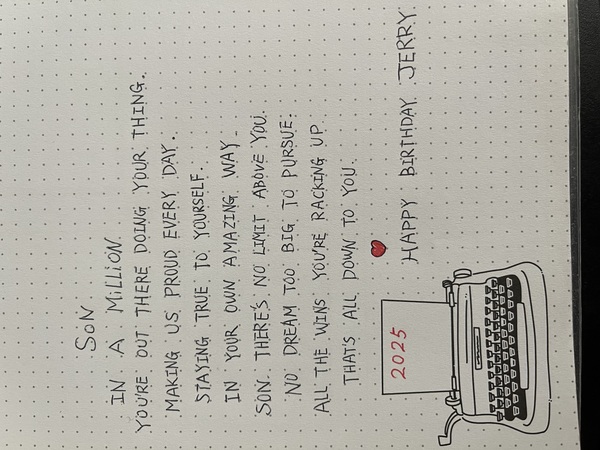 SON
IN A MILLION
YOU'RE OUT THERE DOING YOUR THING.
MAKING US PROUD EVERY DAY.
STAYING TRUE TO YOURSELF.
IN YOUR OWN AMAZING WAY.
SON. THERE'S NO LIMIT ABOVE YOU.
NO DREAM TOO BIG TO PURSUE:
ALL THE WINS YOU'RE RACKING UP
THAT'S ALL DOWN TO YOU.
HAPPY BIRTHDAY JERRY
2025